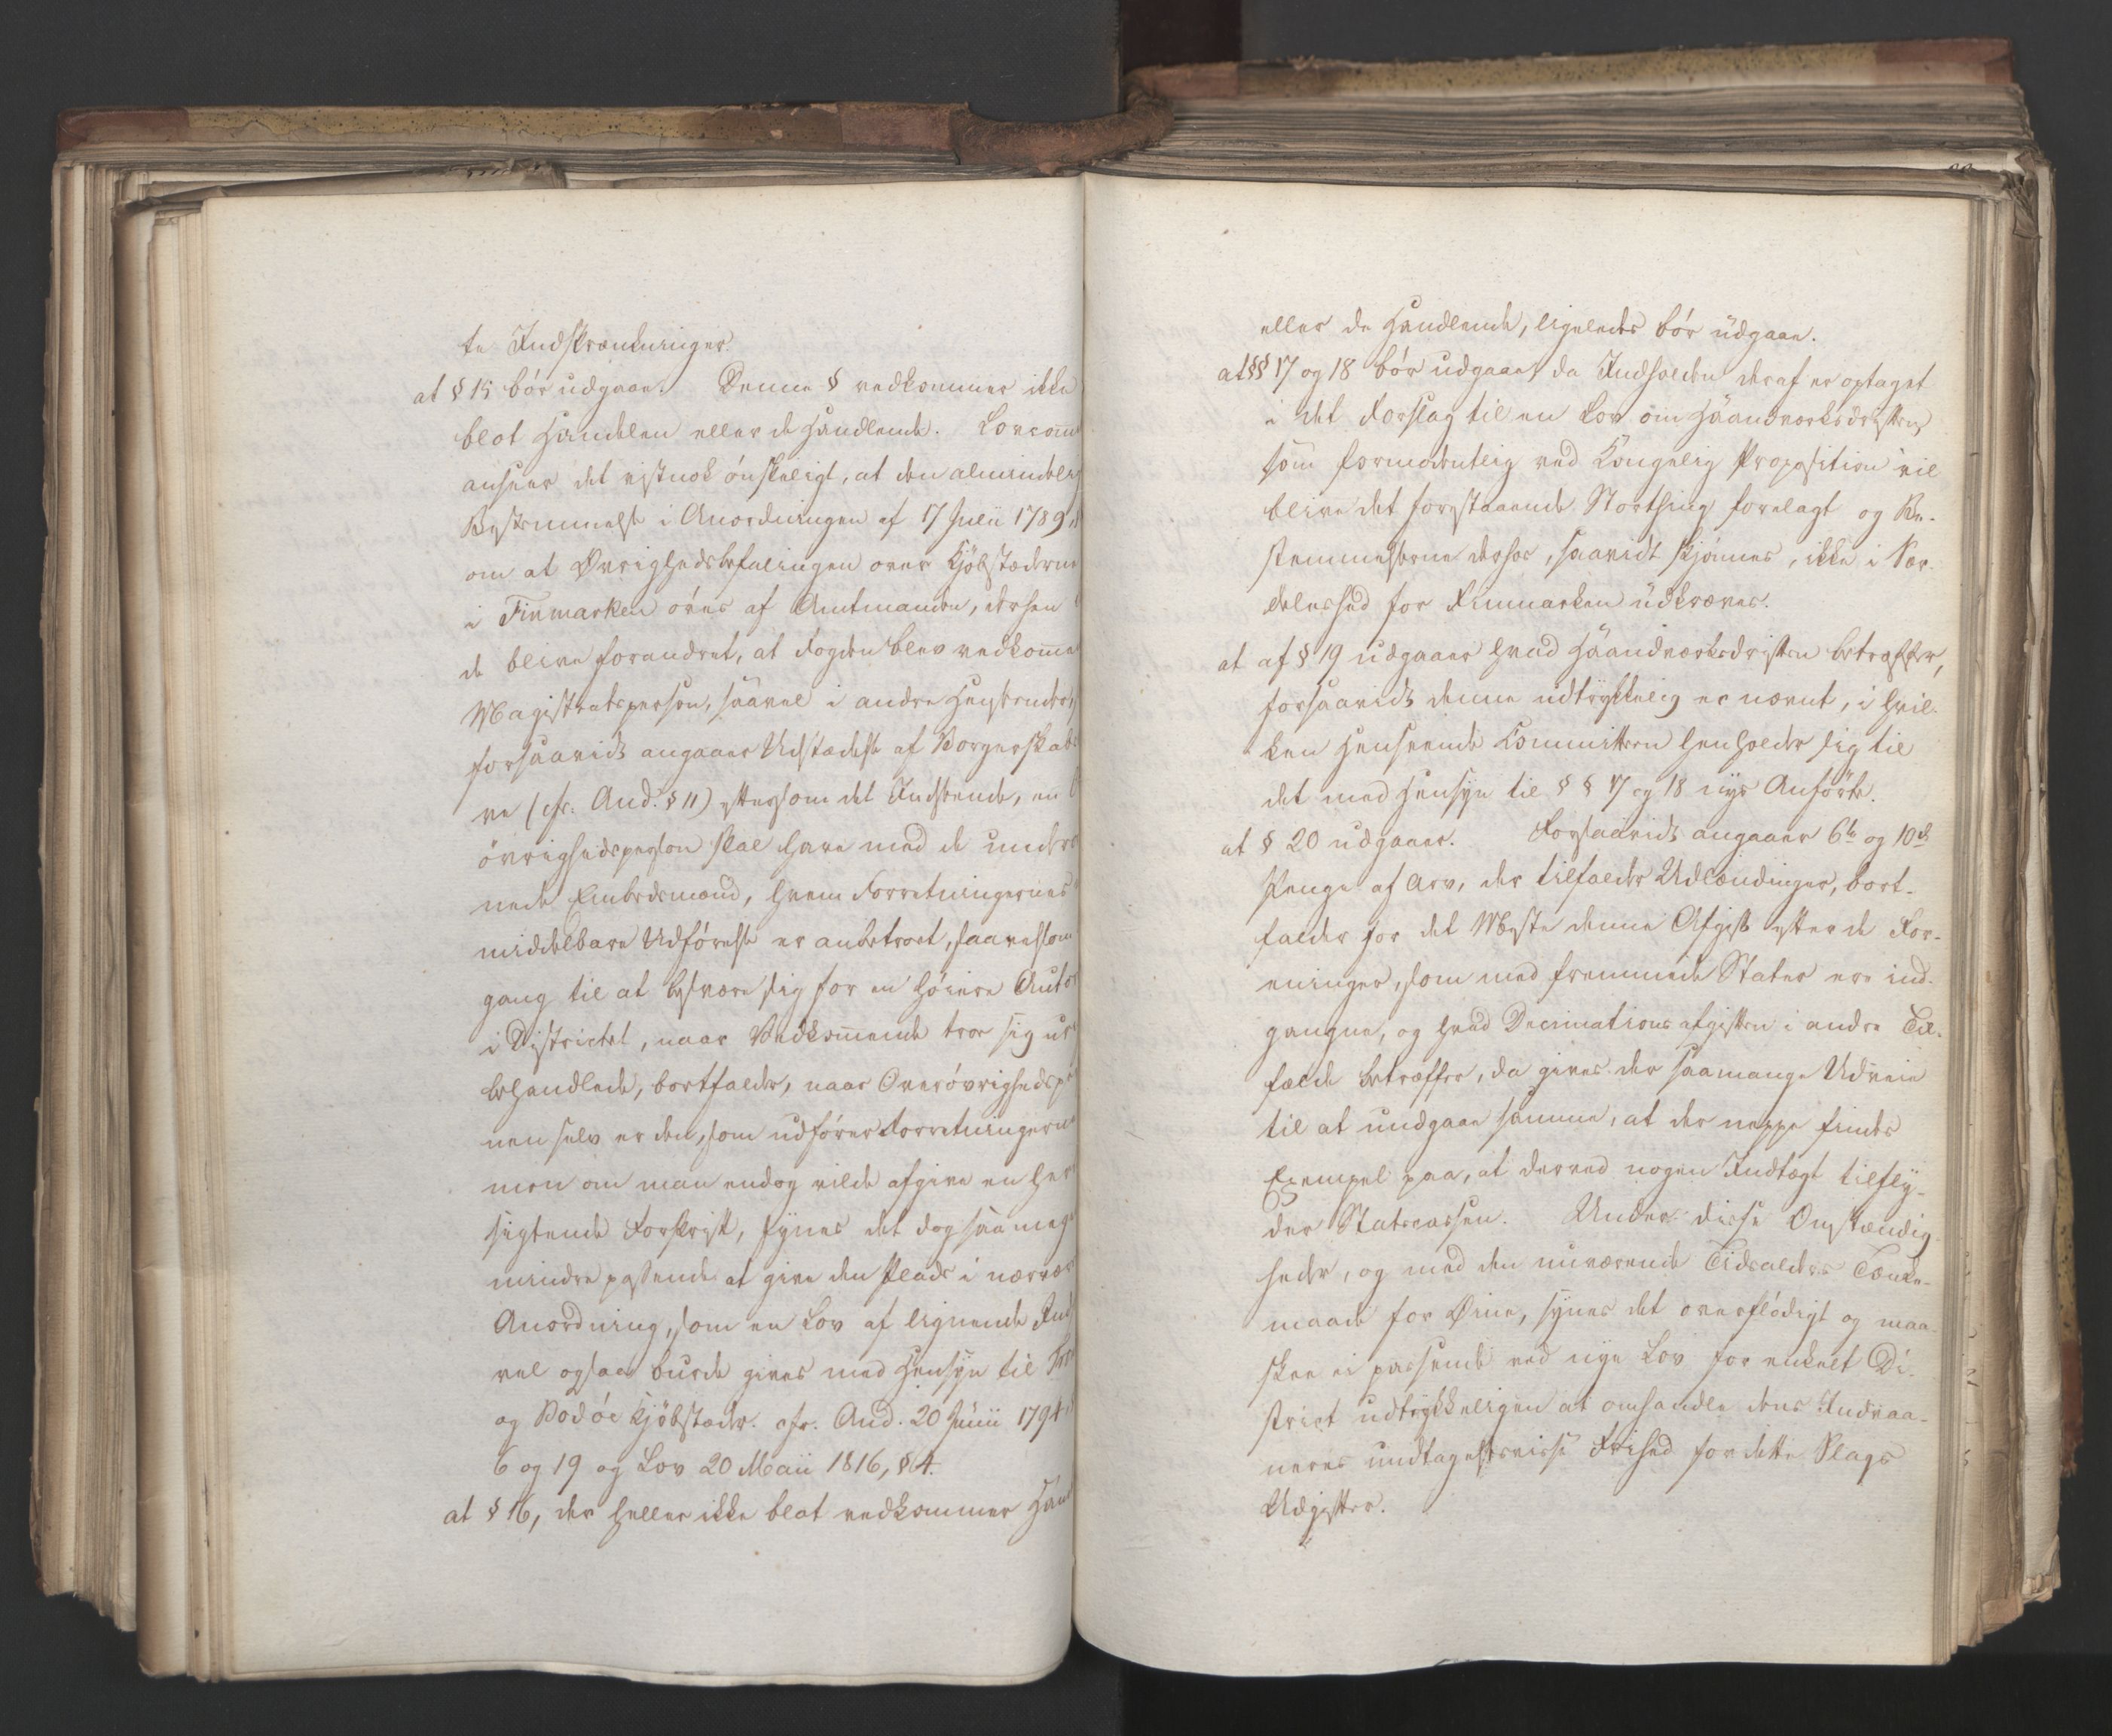 te Indskrænkninger.
at § 15 bór udgaae. Denne § vedkommer ikke
blot Handelen eller de Handlende. Lovcom̅
anseer det vistnok ónskeligt, at den almindelig
Bestemmelse i Anordningen af 17 Julii 1789
om at Øvrighedsbefalingen over Kjöbstæderne
i Finmarken óves af Amtmanden, derhen
de blive forandret, at Fogden blev vedkom̅e
Magistratsperson, saavel i andre Henseender,
forsaavidt angaaer Udstædelse af Borgerskabs
ve (cfr. And. § 11) eftersom det Indseende, en
óvrighedsperson skal have med de under
nede Embedsmænd, hvem Forretningernes
middelbare Udfórelse er anbetroet, saavelsom
gang til at besvære sig for en hóiere Auto
i Districtet, naar Vedkom̅ende troe sig ur
behandlede, bortfalder, naar Overóvrighedsper
nen selv er den, som udfórer Forretningerne
men om man endog vilde afgive en hen
sigtende Forskrift, synes det dog saa meget
mindre passende at give den Plads i nærvær
Anordning, som en Lov af lignende Ind
vel ogsaa burde gives med Hensyn til Tro
og Bodóe Kjöbstæder. cfr. And. 20 Junii 1794
6 og 19 og Lov 20 Maii 1816, § 4.
at § 16, der heller ikke blot vedkommer Hand
eller de Handlende, ligeledes bór udgaae.
at §§ 17 og 18 bór udgaae, da Indholden deraf er optaget
i det Forslag til en Lov om Haandværksdriften,
som formodentlig ved Kongelig Proposition vil
blive det forestaaende Storthing forelagt og Be-
stemmelserne derhos, saavidt skjónnes, ikke i Sær-
deleshed for Finmarken udkræves.
at af § 19 udgaaer hvad Haandværksdriften betræffer,
forsaavidt denne udtrykkelig er nævnt, i hvil-
ken Henseende Committeen henholder sig til
det med Hensyn til §§ 17 og 18 nys Anförte.
at § 20 udgaaer. Forsaavidt angaaer 6te og 10de
Penge af Arv, der tilfalder Udlændinger, bort-
falder for det Meste denne Afgift efter de For-
eninger, som med fremmede Stater ere ind-
gangne, og hvad Decimationsafgiften i andre Til-
fælde betræffer, da gives der saamange Udveie
til at undgaae samme, at der neppe findes
Exempel paa, at derved nogen Indtægt tilfly-
der Statscassen. Under disse Omstændig-
heder, og med den nuværende Tidsalders Tænke-
maade for Øine, synes det overflódigt og maa-
skee ei passende ved nye Lov for enkelt Di-
strict udtrykkeligen at omhandle dens Indvaa-
neres undtagelsesvise Frihed for dette Slags
Udgifter.